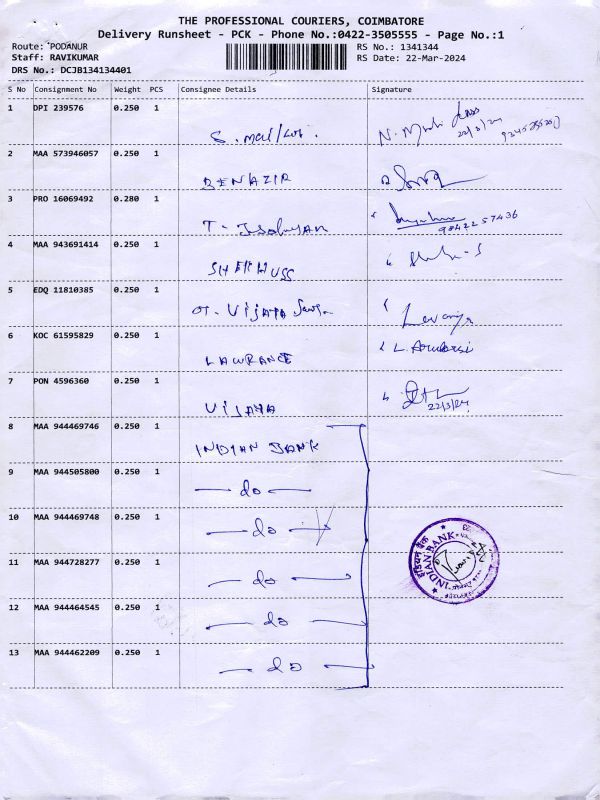 THE PROFESSIONAL COURIERS, COIMBATORE
Delivery Runsheet - PCK - Phone No.:0422-3505555 - Page No.:1
Route: PODANUR
Staff: RAVIKUMAR
DRS No.: DCJB134134401
RS No.: 1341344
RS Date: 22-Mar-2024
S No Consignment No Weight PCS Consignee Details Signature
1 DPI 239576 0.250 1
22/3/24
2 MAA 573946057 0.250 1 BENAZIR
3 PRO 16069492 0.280 1 T-
9842257436
4 MAA 943691414 0.250 1
5 EDQ 11810385 0.250 1 VIJAYA
6 KOC 61595829 0.250 1 LAWRANCE L.
7 PON 4596360 0.250 1 VIJAYA
22/3/24
8 MAA 944469746 0.250 1 INDIAN BANK
9 MAA 944505800 0.250 1 — do —
10 MAA 944469748 0.250 1 — do —
11 MAA 944728277 0.250 1 — do —
12 MAA 944464545 0.250 1 — do —
13 MAA 944462209 0.250 1 — do —
इंडियन बैंक
INDIAN BANK